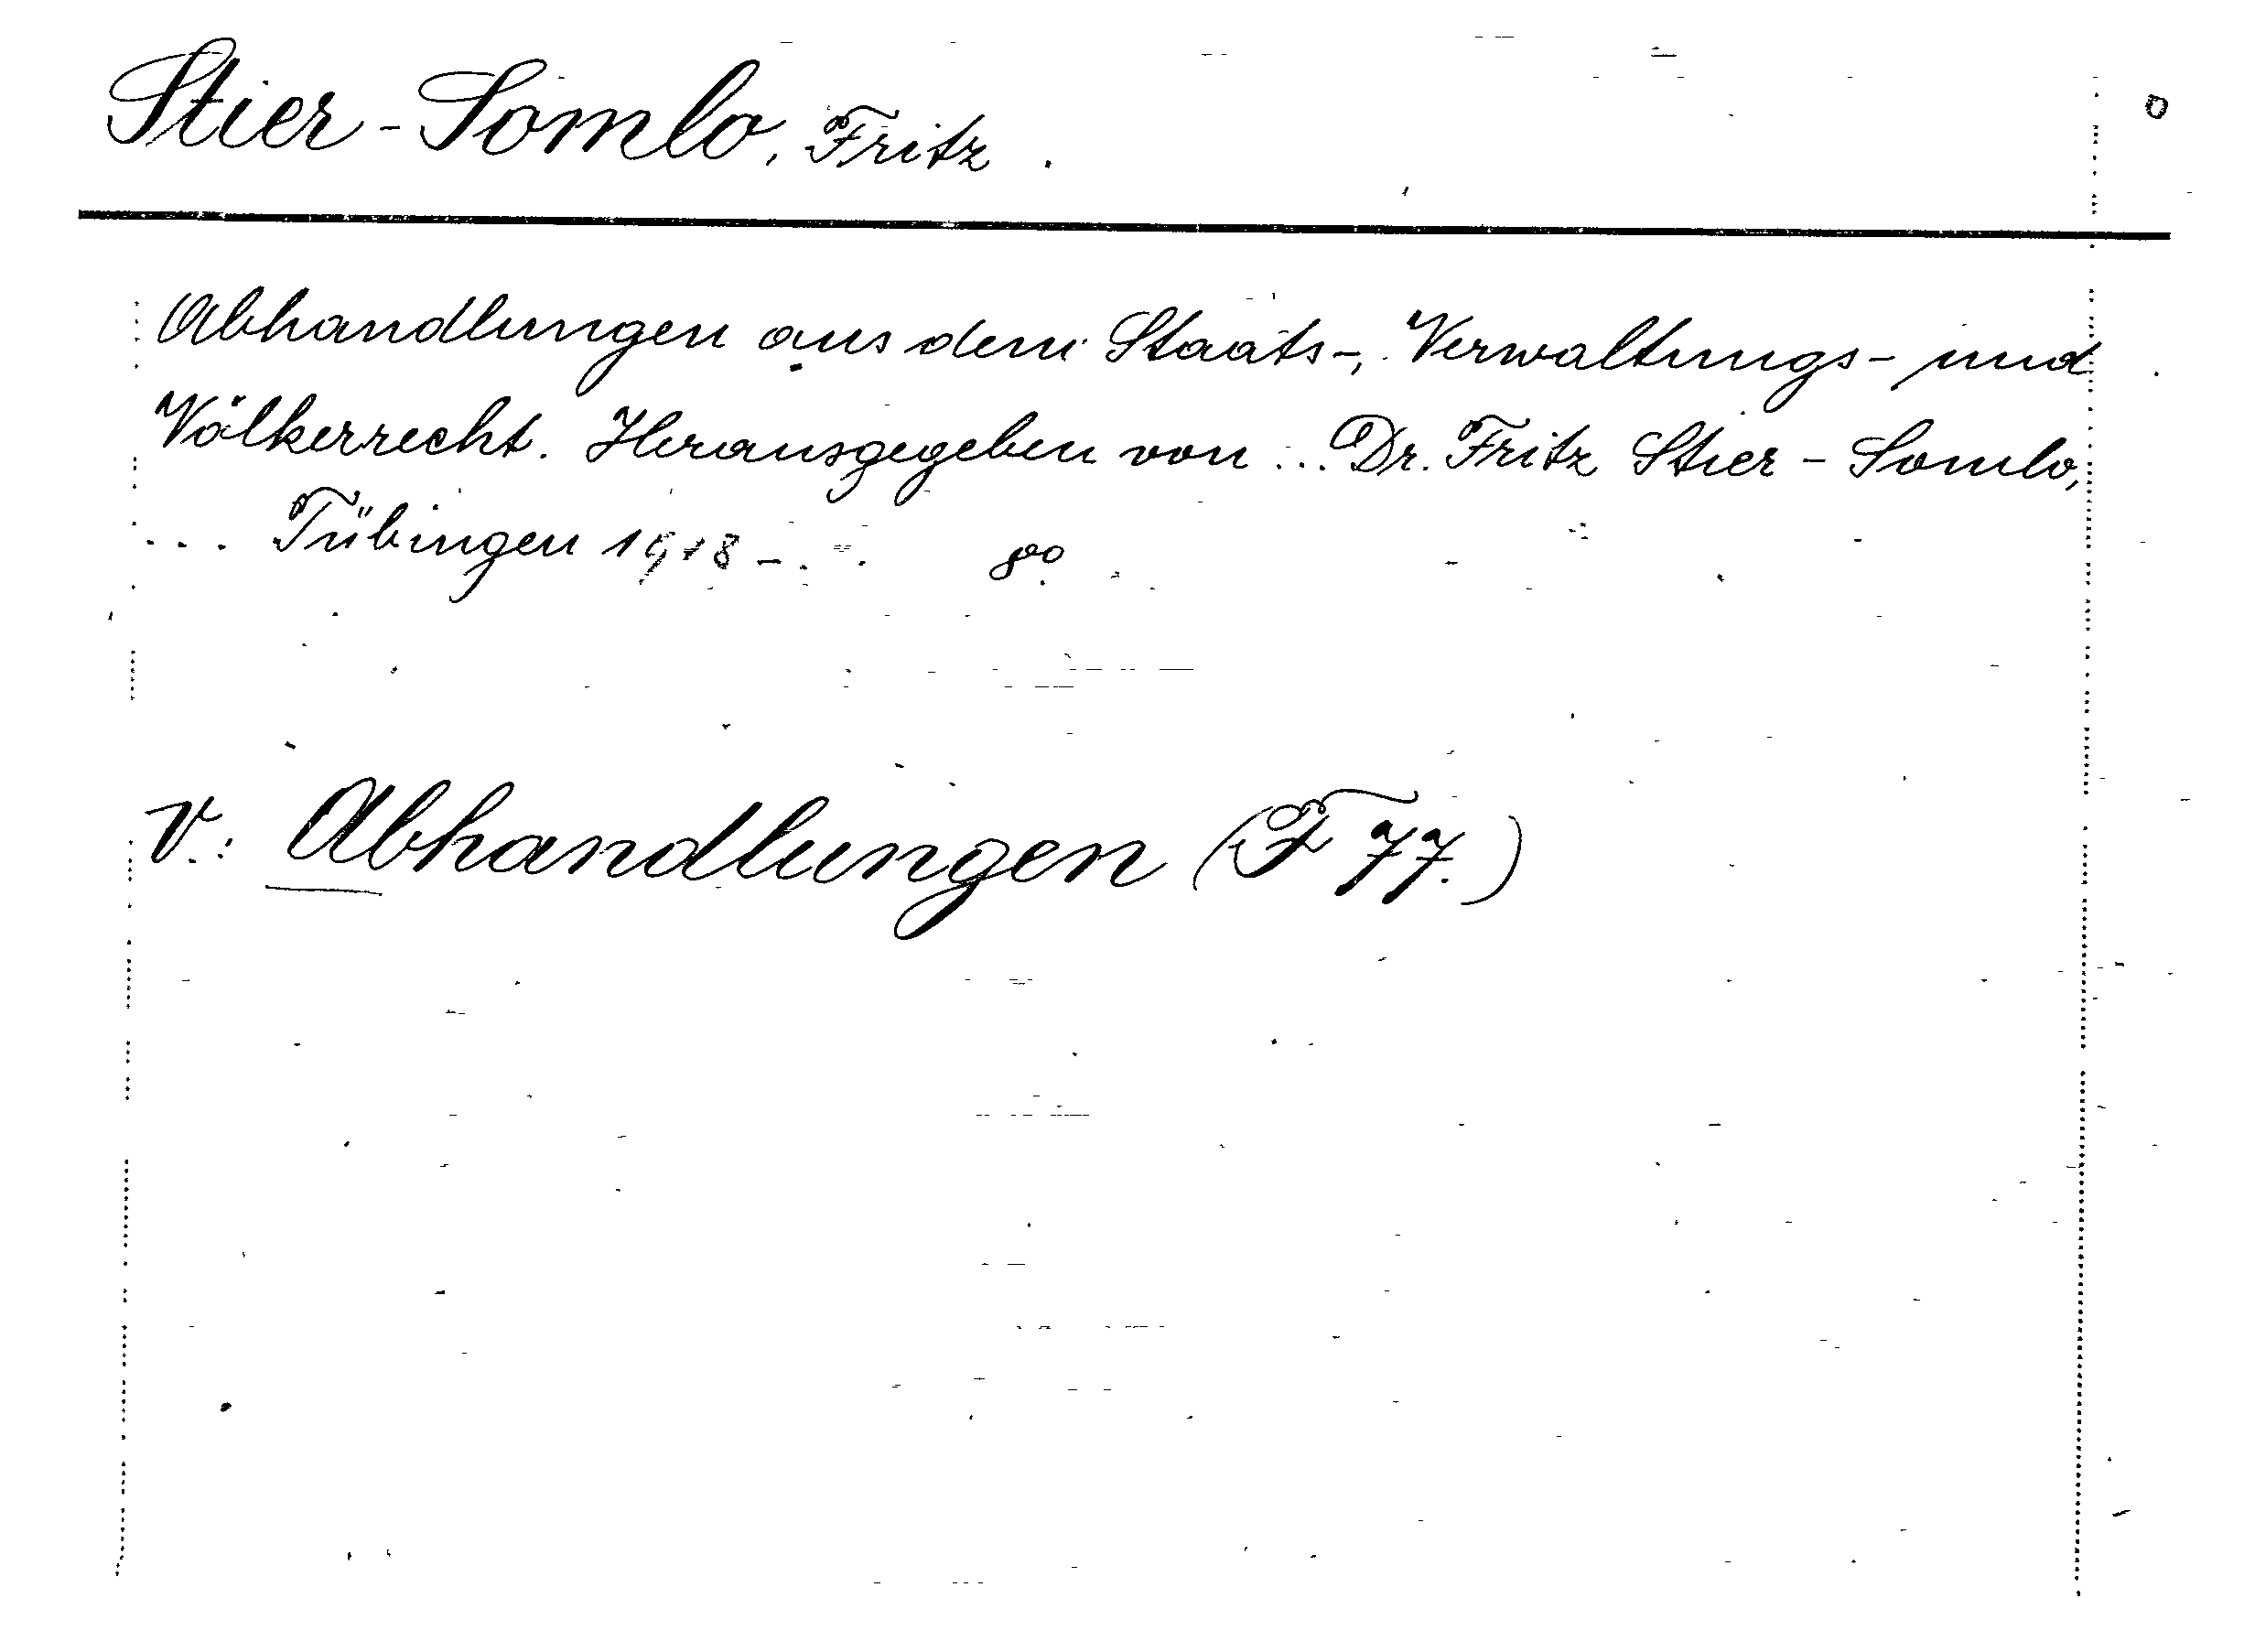 Stier-Somlo, Fritz.
Abhandlungen aus dem Staats-, Verwaltungs- und
Völkerrecht. Herausgegeben von ... Dr. Fritz Stier-Somlo,
... Tübingen 1918-. 8º.
v.: Abhandlungen (F 77.)